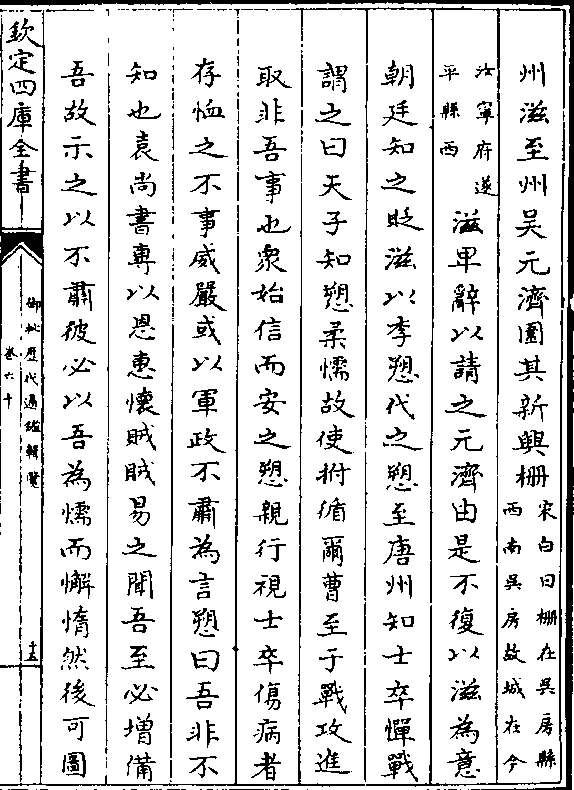 州滋至州吳元濟圍其新興柵宋白曰柵在吳房縣西南吳房故城在今
汝寧府遂平縣西滋卑辭以請之元濟由是不復以滋為意
朝廷知之貶滋以李愬代之愬至唐州知士卒憚戰
謂之曰天子知愬柔懦故使拊循爾曹至于戰攻進
取非吾事也衆始信而安之愬親行視士卒傷病者
存恤之不事威嚴或以軍政不肅為言愬曰吾非不
知也袁尚書專以恩惠懷賊賊易之聞吾至必增備
吾故示之以不肅彼必以吾為懦而懈惰然後可圖
欽定四庫全書
御批歷代通鑑輯覽
卷六十
十五